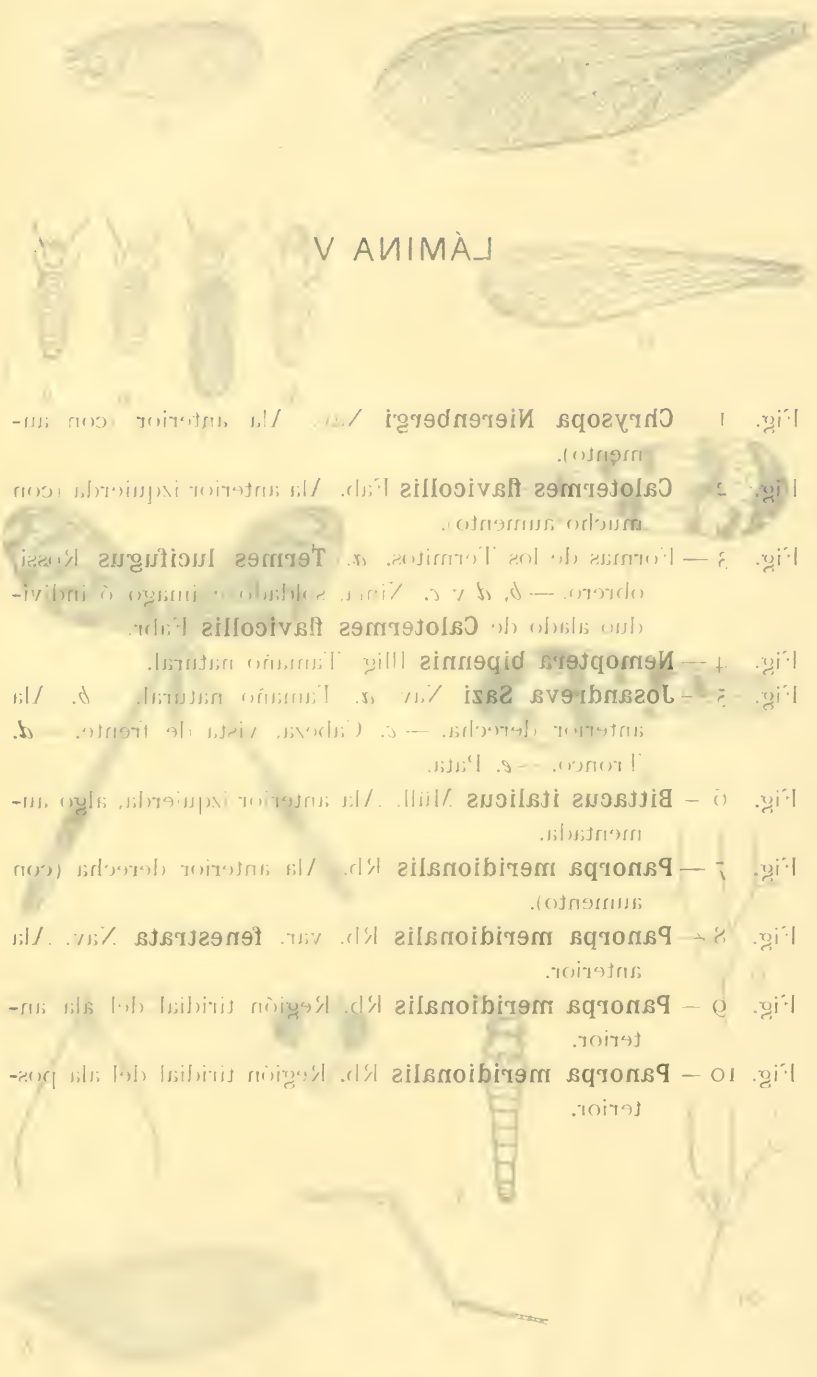 LÀMINA V
Fig. 1 Chrysopa Nierenbergi Nav. Ala anterior (con au-
mento).
Fig. 2 Calotermes flavicollis Fab. Ala anterior izquierda (con
mucho aumento).
Fig. 3 — Formas de los Termitos. a. Termes lucifugus Rossi,
obrero. — b, d y c. soldado e imago ó indivi-
duo alado de Calotermes flavicollis Fabr.
Fig. 4 — Nemoptera bipennis Illig. Tamaño natural.
Fig. 5 — Josandreva Sazi Nav. a. Tamaño natural. b. Ala
anterior derecha. — c. Cabeza, vista de frente. d.
Tronco. — e. Pata.
Fig. 6 — Bittacus italicus Müll. Ala anterior izquierda, algo au-
mentada.
Fig. 7 — Panorpa meridionalis Rb. Ala anterior derecha (con
aumento).
Fig. 8 — Panorpa meridionalis Rb. var. fenestrata Nav. Ala
anterior.
Fig. 9 — Panorpa meridionalis Rb. Región tiridial del ala an-
terior.
Fig. 10 — Panorpa meridionalis Rb. Región tiridial del ala pos-
terior.